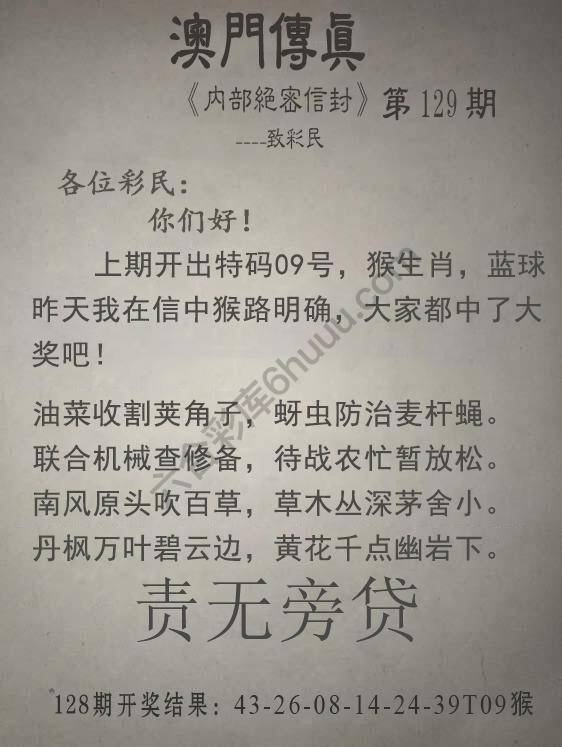 澳門傳眞
《内部絕密信封》第129期
----致彩民
各位彩民：
你们好！
上期开出特码09号，猴生肖，蓝球
昨天我在信中猴路明确，大家都中了大
奖吧！
油菜收割荚角子，蚜虫防治麦杆蝇。
联合机械查修备，待战农忙暂放松。
南风原头吹百草，草木丛深茅舍小。
丹枫万叶碧云边，黄花千点幽岩下。
责无旁贷
128期开奖结果：43-26-08-14-24-39T09猴
六合彩库6huuu.com